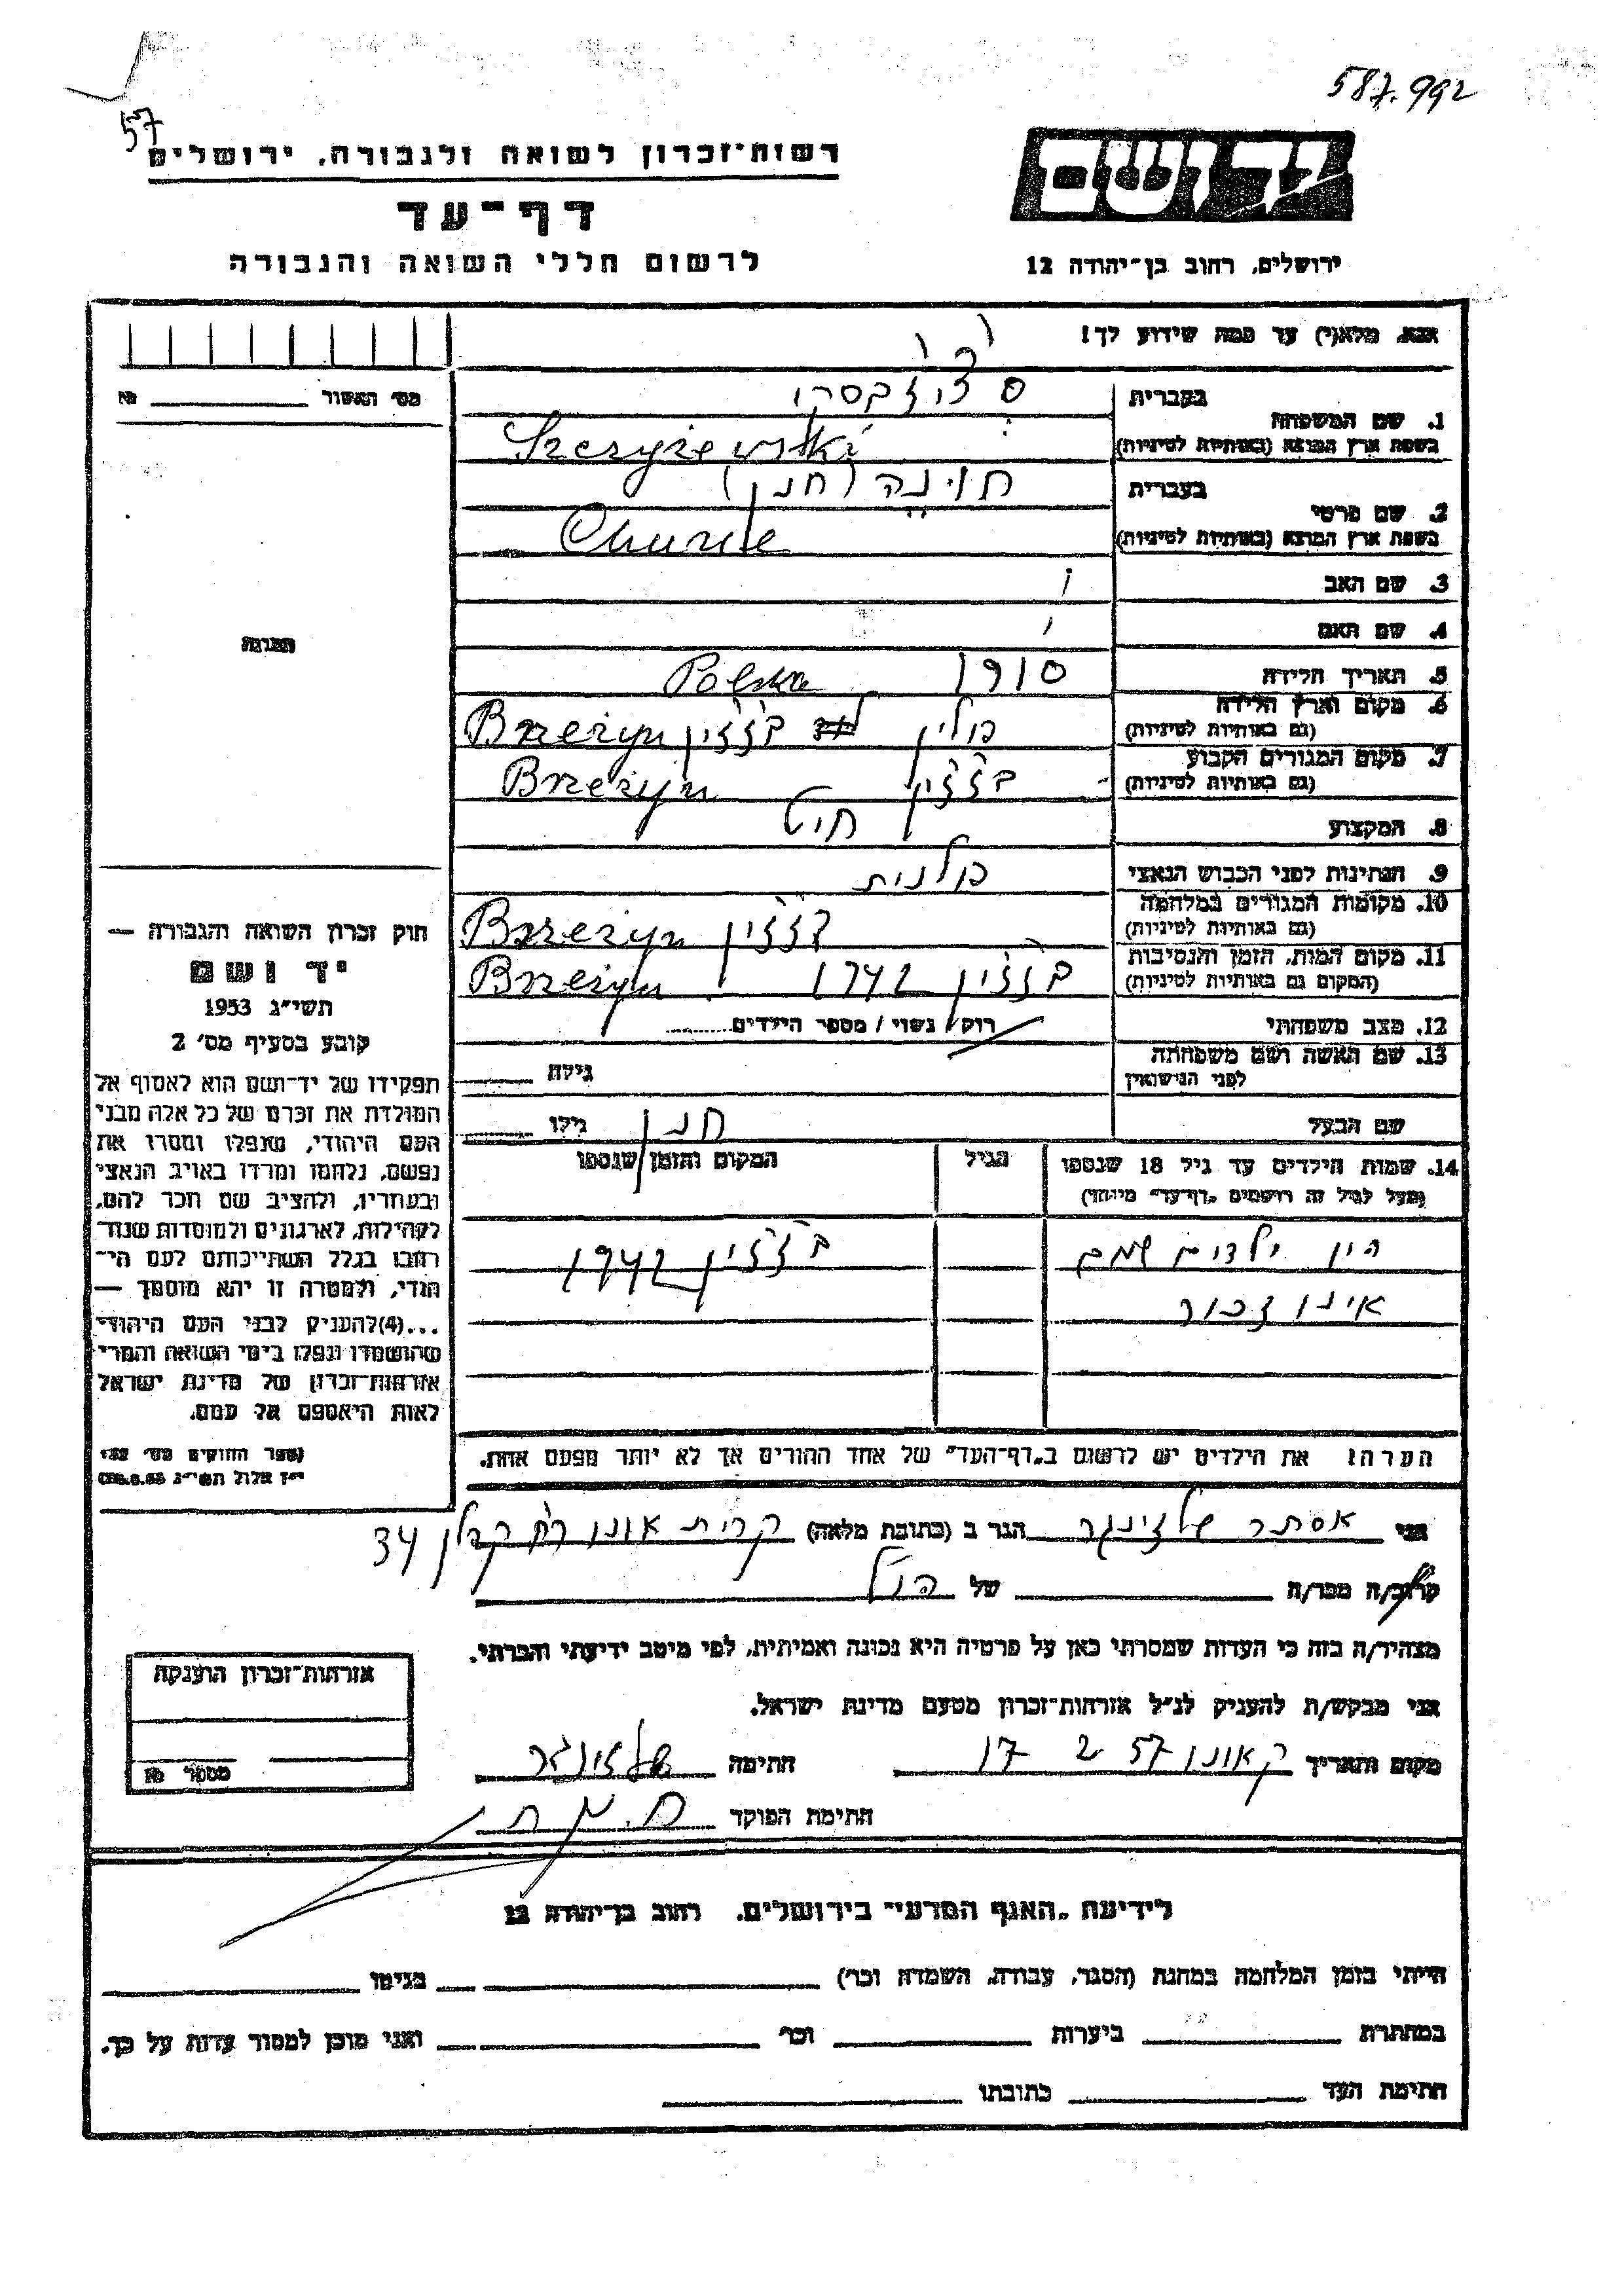 587.992
57
רשות־זכרון לשואה ולגבורה, ירושלים
יד ושם
דף־עד
לרשום חללי השואה והגבורה
ירושלים, רחוב בן־יהודה 12
אנא, מלא(י) עד כמה שידוע לך!
מס' האשור № 
1. שם המשפחה
בעברית
בשפת ארץ המוצא (באותיות לטיניות)
2. שם פרטי
בעברית (חנן)
בשפת ארץ המוצא (באותיות לטיניות)
3. שם האב
4. שם האם
תמונה
5. תאריך הלידה 1910
Polska
6. מקום וארץ הלידה
(גם באותיות לטיניות) פולין בז'ז'ין Brzeziny
7. מקום המגורים הקבוע
(גם באותיות לטיניות) בז'ז'ין Brzeziny
8. המקצוע חייט
9. הנתינות לפני הכבוש הנאצי פולנית
10. מקומות המגורים במלחמה
(גם באותיות לטיניות) בז'ז'ין Brzeziny
11. מקום המות, הזמן והנסיבות
(המקום גם באותיות לטיניות) בז'ז'ין 1942 Brzeziny
12. מצב משפחתי רווק / נשוי / מספר הילדים
13. שם האשה ושם משפחתה
לפני הנישואין
גילה
שם הבעל חנן גילו
14. שמות הילדים עד גיל 18 שנספו
(מעל לגיל זה רושמים „דף־עד" מיוחד)
הגיל
המקום והזמן שנספו
היו ילדים שמם בז'ז'ין 1942
אינו זכור
הערה! את הילדים יש לרשום ב„דף־העד" של אחד ההורים אך לא יותר מפעם אחת.
חוק זכרון השואה והגבורה —
יד ושם
תשי״ג 1953
קובע בסעיף מס׳ 2
תפקידו של יד־ושם הוא לאסוף אל
המולדת את זכרם של כל אלה מבני
העם היהודי, שנפלו ומסרו את
נפשם, נלחמו ומרדו באויב הנאצי
ובעוזריו, ולהציב שם וזכר להם,
לקהילות, לארגונים ולמוסדות שנח־
רבו בגלל השתייכותם לעם הי־
הודי, ולמטרה זו יהא מוסמך —
...(4)להעניק לבני העם היהודי
שהושמדו ונפלו בימי השואה והמרי
אזרחות־זכרון של מדינת ישראל
לאות היאספם אל עמם.
(ספר החוקים מס׳ 132
י״ז אלול תשי״ג 28.8.53)
אני אסתר שלזינגר הגר ב (כתובת מלאה) קרית אונו רח קפלן 34
קרוב/ה מכר/ה של הנ״ל
מצהיר/ה בזה כי העדות שמסרתי כאן על פרטיה היא נכונה ואמיתית, לפי מיטב ידיעתי והכרתי.
אני מבקש/ת להעניק לנ״ל אזרחות־זכרון מטעם מדינת ישראל.
מקום ותאריך ק אונו 17 2 57 חתימה שלזינגר
חתימת הפוקד
אזרחות־זכרון הוענקה
מספר №
לידיעת „האגף המדעי" בירושלים. רחוב בן־יהודה 12
הייתי בזמן המלחמה במחנה (הסגר, עבודה, השמדה וכו׳) בגיטו
במחתרת ביערות וכו׳ ואני מוכן למסור עדות על כך.
חתימת העד כתובתו